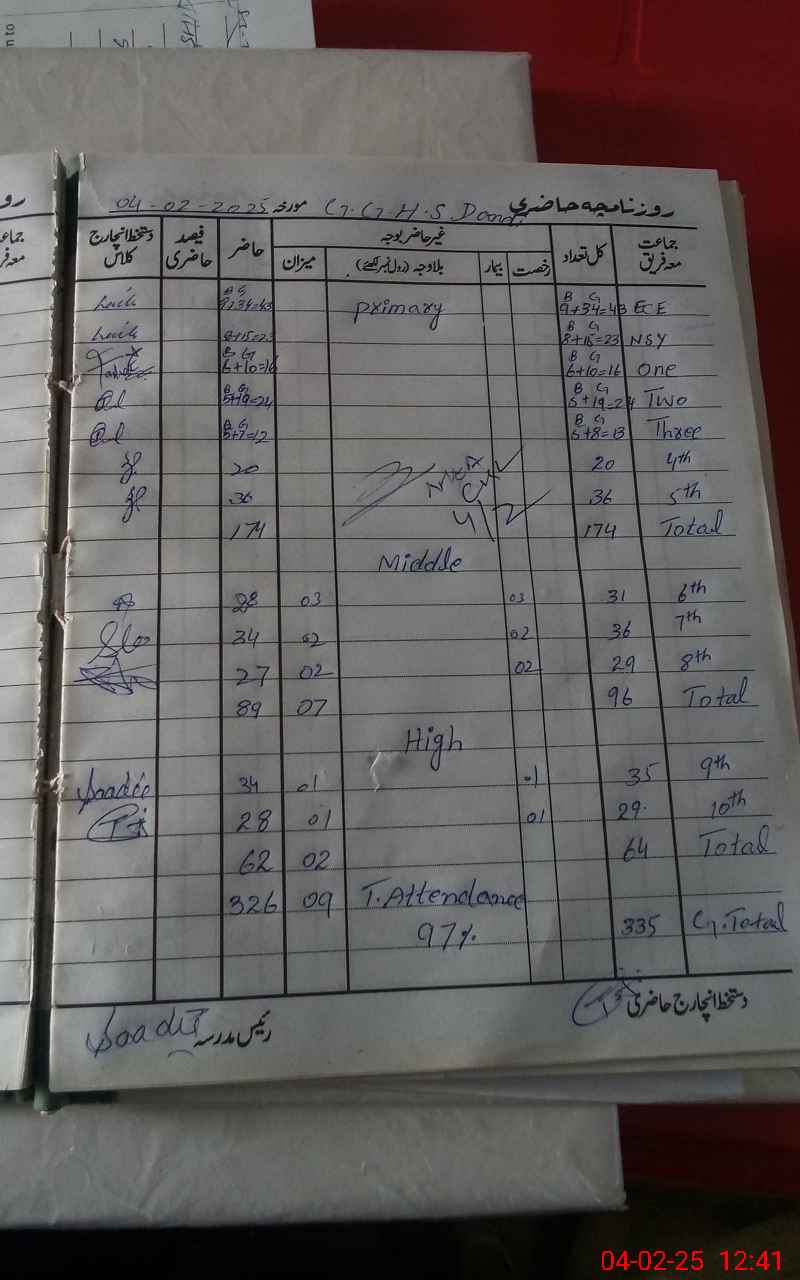 روزنامچہ حاضری G.G.H.S Dandi مورخہ 04-02-2025
جماعت معہ فریق کل تعداد غیر حاضر بوجہ حاضر فیصد حاضری دستخط انچارج کلاس
رخصت بیمار بلاوجہ (رول نمبر لکھئے) میزان
ECE B G 9+34=43 primary B G 9+34=43
NSY B G 8+15=23 8+15=23
One B G 6+10=16 B G 6+10=16
Two B G 5+19=24 B G 5+19=24
Three B G 5+8=13 B G 5+7=12
4th 20 20
5th 36 36
MEA
4/2
Total 174 174
Middle
6th 31 03 03 28
7th 36 02 02 34
8th 29 02 02 27
Total 96 07 89
High
9th 35 01 01 34 Saadia
10th 29 01 01 28
Total 64 02 62
T. Attendance 09 326
G. Total 335 97%
دستخط انچارج حاضری
رئیس مدرسہ Saadia
04-02-25 12:41